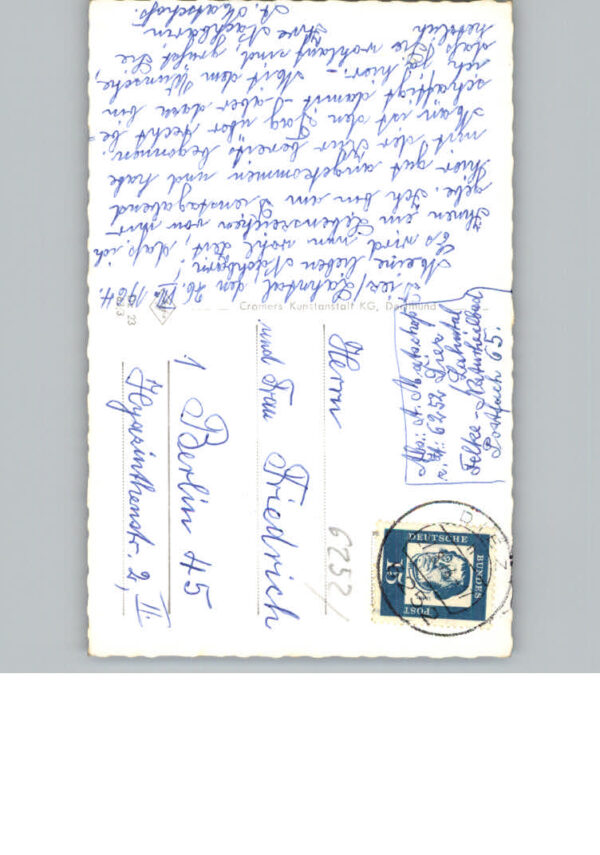 Diez/Lahntal, den 26. IV. 1964.
Meine lieben Nachbarn!
Es wird nun wohl Zeit, daß ich
Ihnen ein Lebenszeichen von mir
gebe. Ich bin am Dienstagabend
hier gut angekommen und habe
mit der Kur bereits begonnen.
Man ist den Tag über recht be-
schäftigt damit - aber dazu bin
ich ja hier. - Mit dem Wunsche,
daß Sie wohlauf sind, grüßt Sie
herzlich
Ihre Nachbarin
A. Matschoß.
Cramers Kunstanstalt KG, Dortmund
Abs.: A. Matschoß
z. Zt.: 6252 Diez
Lahntal
Felke-Naturheilbad
Postfach 65.
DIEZ
DEUTSCHE
BUNDES
POST
15
6252/
Herrn
und Frau Friedrich
1 Berlin 45
Hyazinthenstr. 2, II.